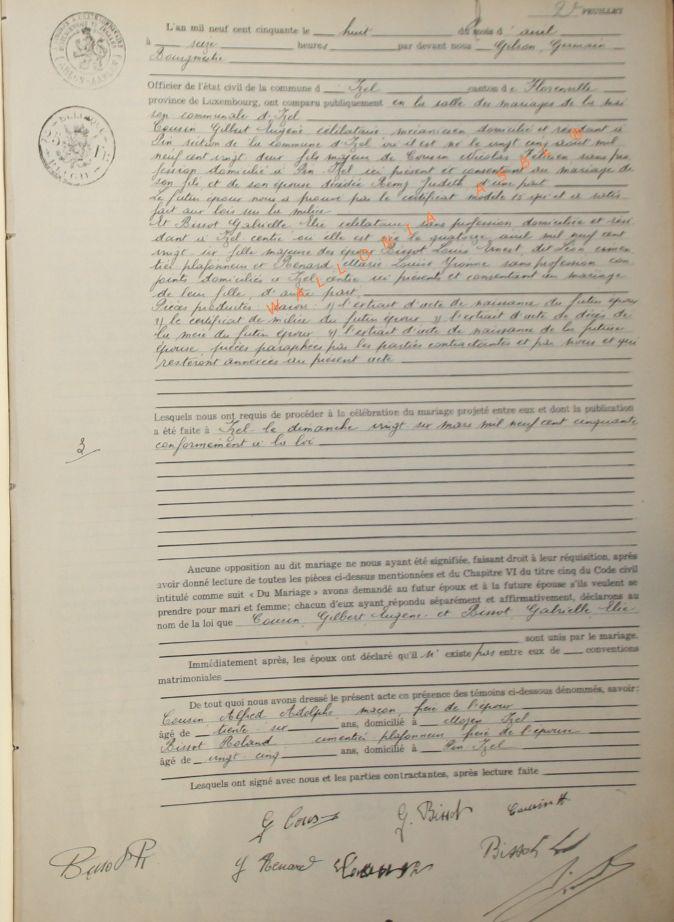 2e FEUILLET
L'an mil neuf cent cinquante le huit du mois d' avril
à seize heures par devant nous Gilson, Germain
Bourgmestre
Officier de l'état civil de la commune d Izel canton de Florenville
province de Luxembourg, ont comparu publiquement en la salle des mariages de la mai
son communale d'Izel
Cousin Gilbert Eugène célibataire mécanicien domicilié et résidant à
Pin section de la commune d'Izel où il est né le vingt cinq août mil
neuf cent vingt deux fils majeur de Cousin Nicolas sans pro
fession domicilié à Pin Izel ici présent et consentant au mariage de
son fils et de son épouse décédée Judith d'une part
Le futur époux nous a prouvé par le certificat modèle 15 qu'il a satis
fait aux lois sur la milice
Et Bissot Gabrielle Elie célibataire sans profession domiciliée et rési
dant à Izel centre où elle est née le quatorze avril mil neuf cent
vingt six fille majeure des époux Bissot Louis Ernest dit Léon cimen
tier plafonneur et Renard Marie Louise Yvonne sans profession con
joints domiciliés à Izel centre ici présents et consentant au mariage
de leur fille, d'autre part
Pièces produites: 1) l'extrait d'acte de naissance du futur époux
2) le certificat de milice du futur époux 3) l'extrait d'acte de décès de
la mère du futur époux 4) l'extrait d'acte de naissance de la future
épouse, pièces paraphées par les parties contractantes et par nous et qui
resteront annexées au présent acte
WALLONIA ASBL ©
Lesquels nous ont requis de procéder à la célébration du mariage projeté entre eux et dont la publication
a été faite à Izel le dimanche vingt six mars mil neuf cent cinquante
conformément à la loi
3
Aucune opposition au dit mariage ne nous ayant été signifiée, faisant droit à leur réquisition, après
avoir donné lecture de toutes les pièces ci-dessus mentionnées et du Chapitre VI du titre cinq du Code civil
intitulé comme suit « Du Mariage » avons demandé au futur époux et à la future épouse s'ils veulent se
prendre pour mari et femme; chacun d'eux ayant répondu séparément et affirmativement, déclarons au
nom de la loi que Cousin Gilbert Eugène et Bissot Gabrielle Elie
sont unis par le mariage.
Immédiatement après, les époux ont déclaré qu'il n' existe pas entre eux de conventions
matrimoniales
De tout quoi nous avons dressé le présent acte en présence des témoins ci-dessous dénommés, savoir:
Cousin Alfred Adolphe maçon, frère de l'époux
âgé de trente six ans, domicilié à Moyen Izel
Bissot Roland cimentier plafonneur frère de l'épouse
âgé de vingt cinq ans, domicilié à Pin Izel
Lesquels ont signé avec nous et les parties contractantes, après lecture faite
G. Bissot
Y Renard
Bissot